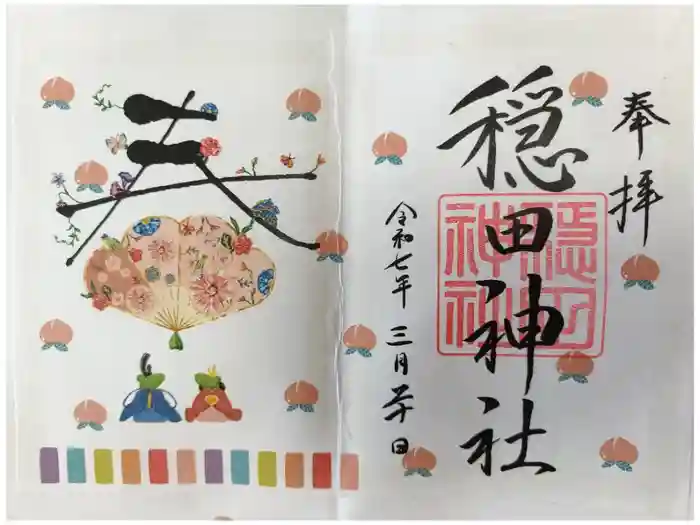 奉拝
穏田神社
穏田
神社
令和七年 三月 日
春